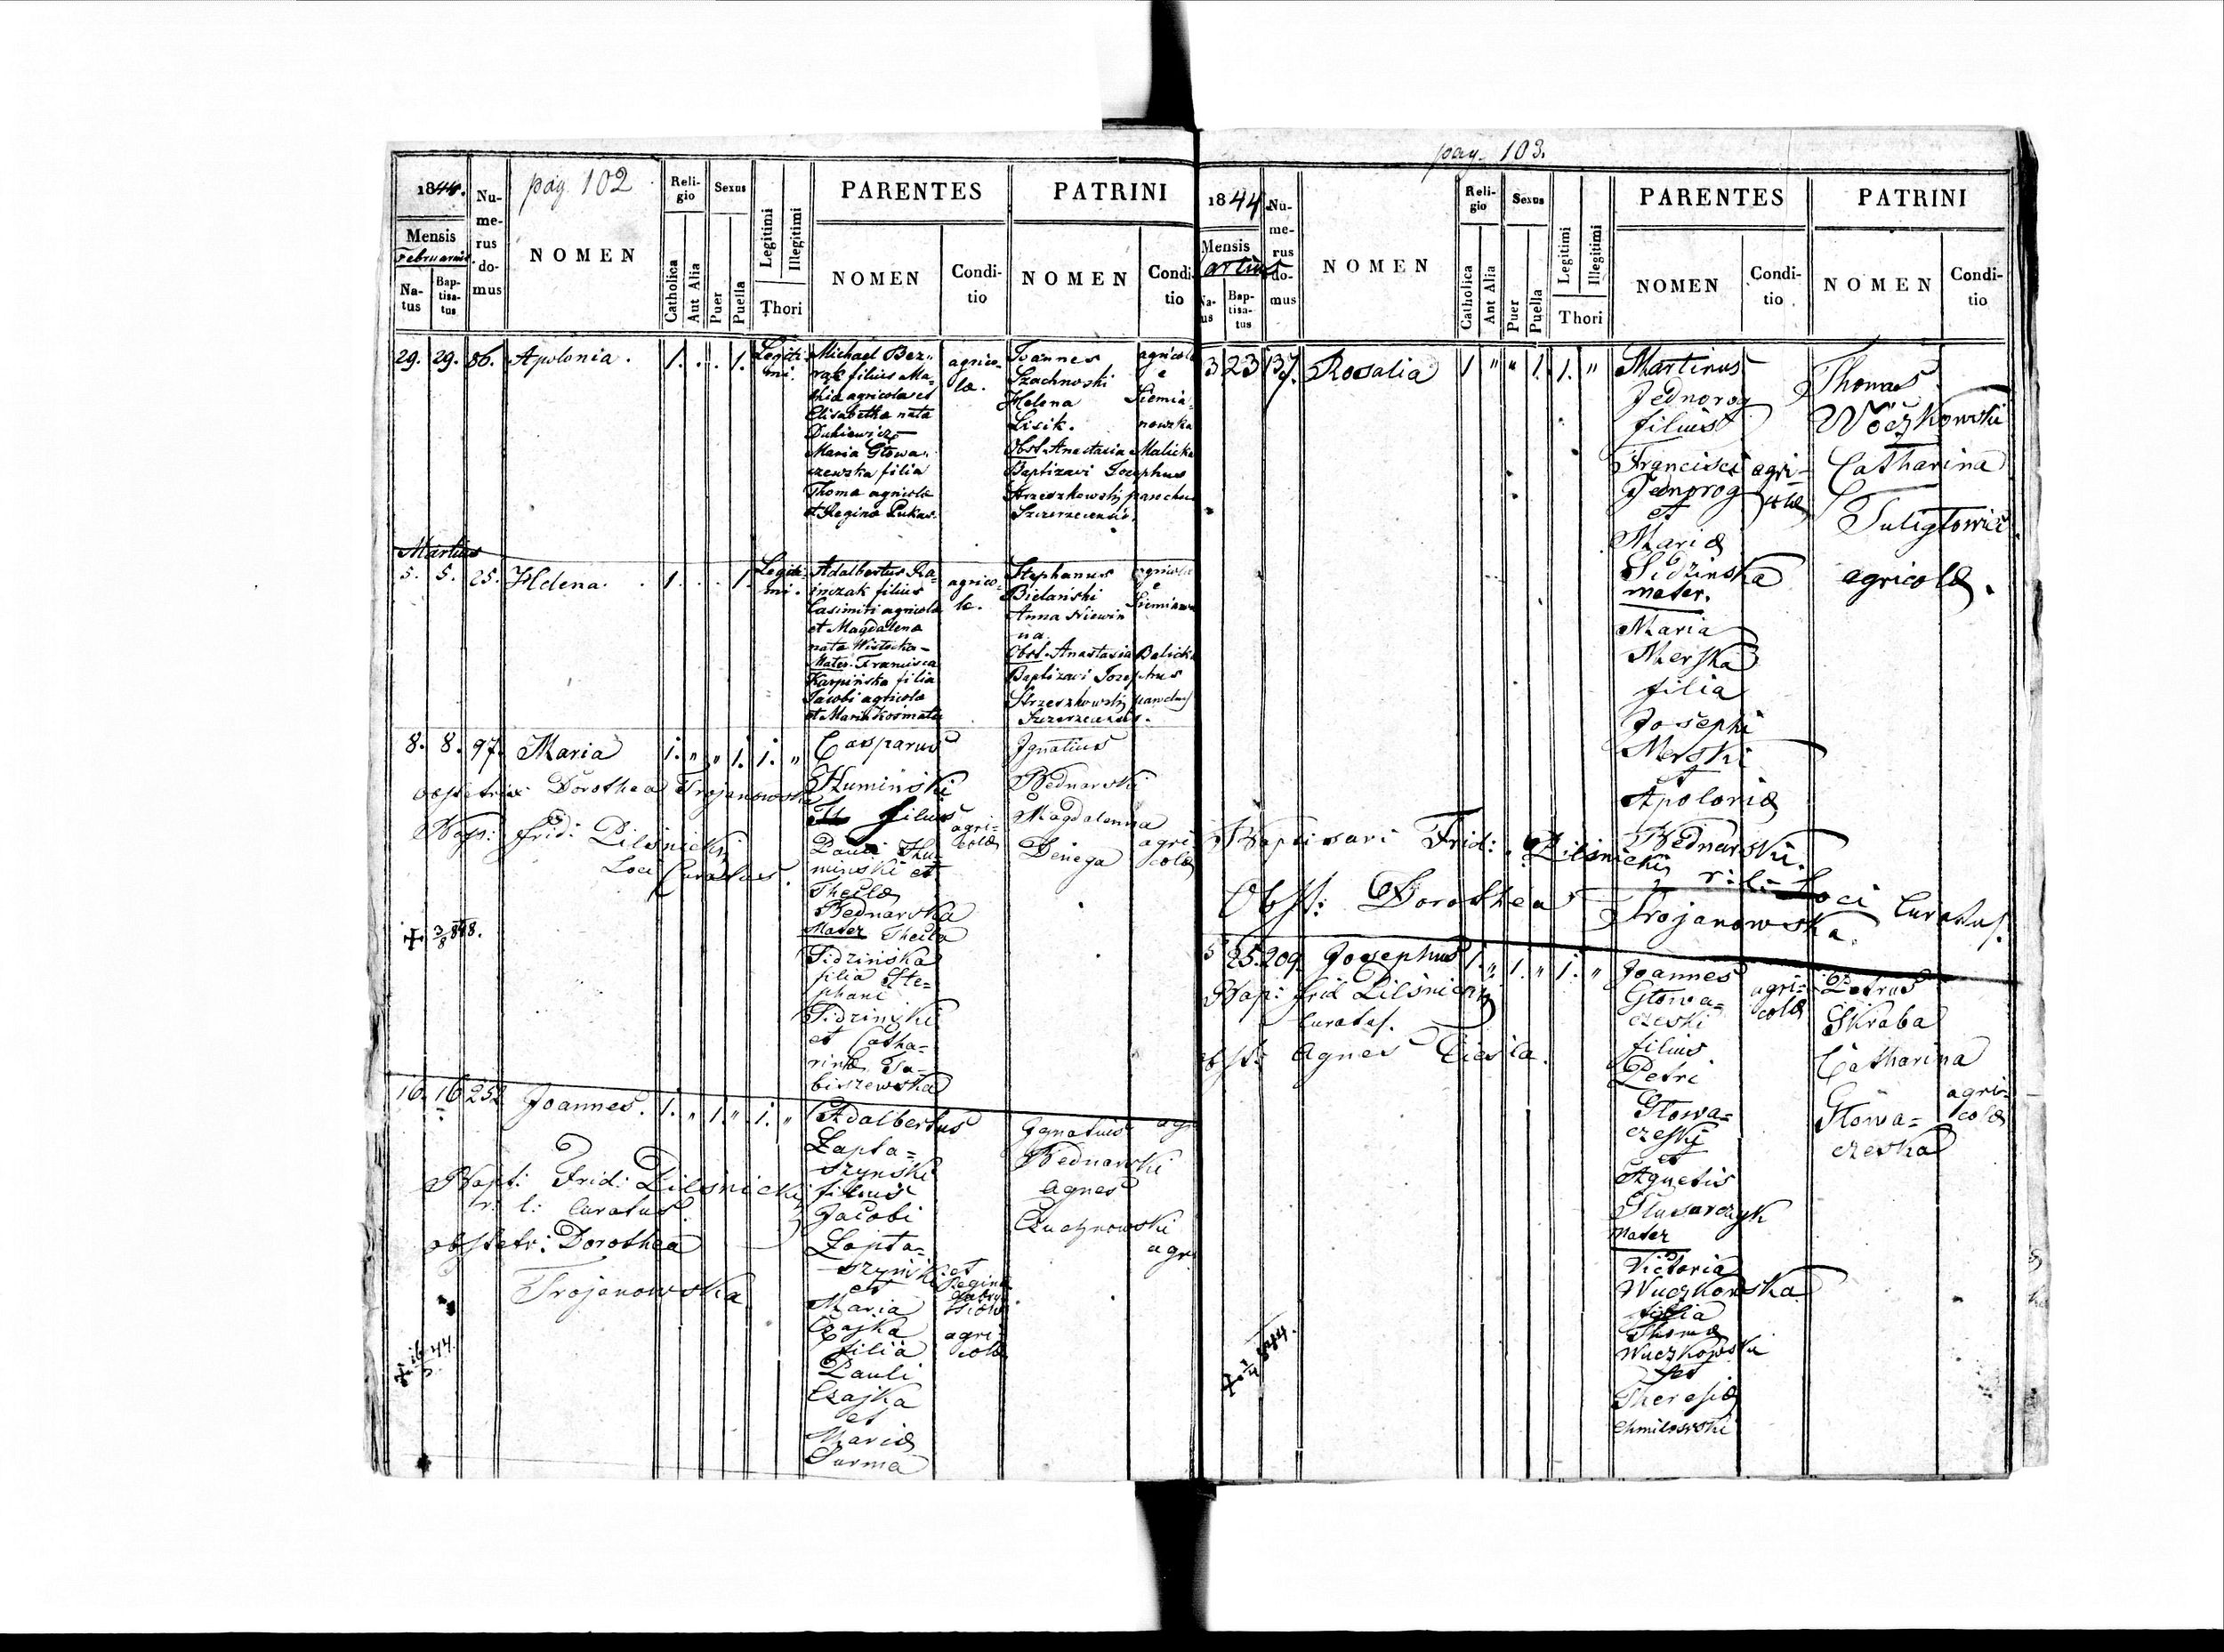 pag 102
1844.
Mensis
Februarius
Natus
Baptisatus
Numerus domus
NOMEN
Religio
Catholica
Aut Alia
Sexus
Puer
Puella
Legitimi
Illegitimi
Thori
PARENTES
NOMEN
Conditio
PATRINI
NOMEN
Conditio
29. 29. 86. Apolonia. 1. . . 1. Legiti
mi.
Michael Ber
filius Ma=
thia agricola et
Elisabetha nata
Maria Głowa
czewska filia
Thoma agricola
et Regina
agrico-
la.
Joannes
Szachnoski
Helena
Lisik.
Obst. Anastasia Malicka
Baptizavi Josephus
Strzeszkowski parochus
Szczerzecensis.
agricola
e
Siemia
nowka
Martius
5. 5. 25. Helena. 1. . . 1. Legiti
mi.
Adalbertus Ra=
filius
Casimiri agricola
et Magdalena
nata
Mater Francisca
Karpińska filia
Jacobi agricola
et Maria
agrico-
la.
Stephanus
Bielański
Anna Niewin
na.
Obst. Anastasia Balicka
Baptizavi Josephus
Strzeszkowski parochus
Szczerzecensis.
agricola
e
8. 8. 97. Maria 1. " " 1. 1. "
obstetrix Dorothea Trojanowska
Bap: frid: Pilśnicki
Loci Curatus.
+ 3/8 848.
Casparus
Huminski
filius
Pauli Hu=
minski et
Theclæ
Bednarska
Mater Thecla
Sidzinska
filia Ste=
phani
Sidzinski
et Catha=
rinæ
agri=
colæ
Ignatius
Bednarski
Magdalenna
Dżiega
agri
colæ
16. 16 252 Joannes. 1. " 1. " 1. "
Bapt: Frid: Pilśnicki
r. l: Curatus.
obstetr: Dorothea
Trojanowska
Adalbertus
Łapta=
szynski
filius
Jacobi
Łapta=
szynski
et
Maria
Czajka
filia
Pauli
Czajka
et
Mariæ
Surma
et
Regina
agri
colæ
Ignatius
Bednarski
Agnes
Czucznowski
pag. 103.
1844
Mensis
Martius
Natus
Baptisatus
Numerus domus
NOMEN
Religio
Catholica
Aut Alia
Sexus
Puer
Puella
Legitimi
Illegitimi
Thori
PARENTES
NOMEN
Conditio
PATRINI
NOMEN
Conditio
23 137. Rosalia 1 " " 1. 1. "
Martinus
Jednorog
filius
Francisci
Jednorog
et
Mariæ
Sidzinska
mater.
Maria
Merska
filia
Josephi
Merski
et
Apoloniæ
Bednarski.
agri=
colæ
Thomas
Woczkowski
Catharina
Tuligłowicz
agricolæ.
Baptisavi Frid: Pilśnicki r: l: Loci Curatus.
Obst: Dorothea Trojanowska.
25. 209. Josephus 1. " 1. " 1. "
Bap: frid Pilśnicki
Curatus.
obst: Agnes
Joannes
Głowa=
czeski
filius
Petri
Głowa=
czeski
et
Agnetis
Slusarczyk
Mater
Victoria
Wuczkowska
filia
Thomæ
Wuczkowski
et
Theresiæ
Chmilowski
agri=
colæ
Petrus
Skraba
Catharina
Głowa=
czeska
agri=
colæ